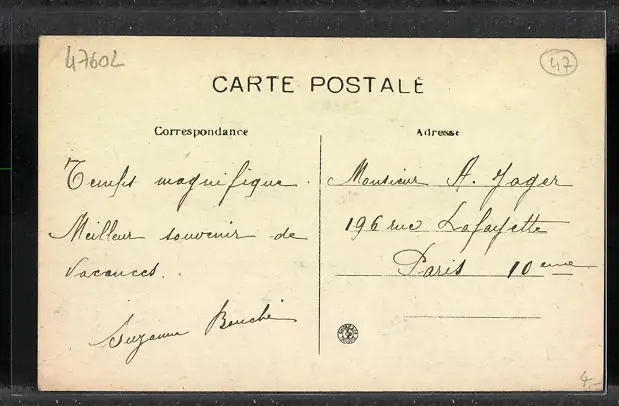 47602
47
CARTE POSTALE
Correspondance
Adresse
Temps magnifique.
Meilleur souvenir de
vacances.
Suzanne Bouché
Monsieur A. Jager
196 rue Lafayette
Paris 10eme
4,-